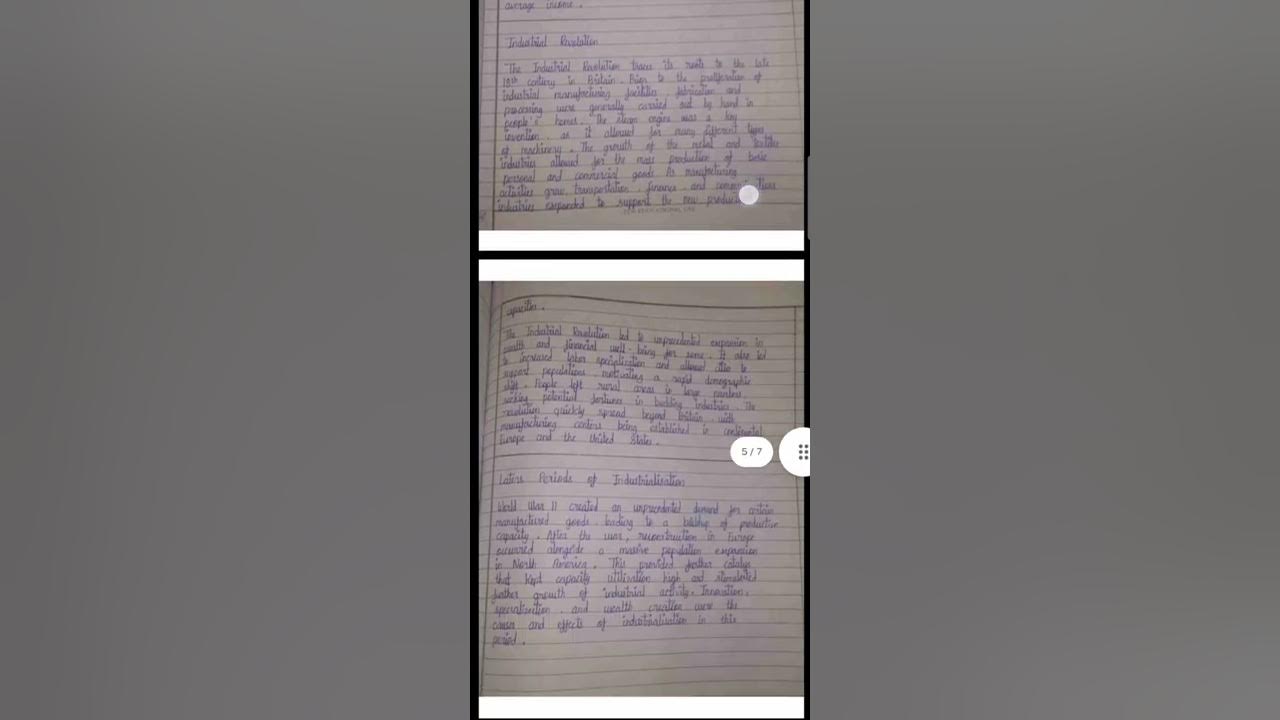 average income.
Industrial Revolution
The Industrial Revolution traces its roots to the late
18th century in Britain. Prior to the proliferation of
industrial manufacturing facilities, fabrication and
processing were generally carried out by hand in
people's homes. The steam engine was a key
invention, as it allowed for many different types
of machinery. The growth of the metal and textile
industries allowed for the mass production of basic
personal and commercial goods. As manufacturing
activities grew, transportation, finance, and communications
industries expanded to support the new productive
capacities.
The Industrial Revolution led to unprecedented expansion in
wealth and financial well-being for some. It also led
to increased labor specialization and allowed cities to
support populations, motivating a rapid demographic
shift. People left rural areas in large numbers,
seeking potential fortunes in budding industries. The
revolution quickly spread beyond Britain, with
manufacturing centers being established in continental
Europe and the United States.
5/7
Laters Periods of Industrialisation
World War II created an unprecedented demand for certain
manufactured goods, leading to a buildup of productive
capacity. After the war, reconstruction in Europe
occurred alongside a massive population expansion
in North America. This provided further catalys
that kept capacity utilisation high and stimulated
further growth of industrial activity. Innovation,
specialisation, and wealth creation were the
causes and effects of industrialisation in this
period.